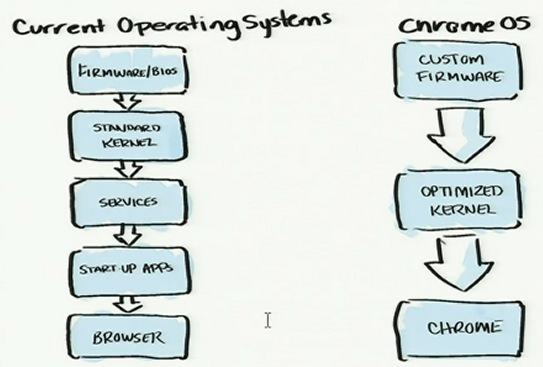 Current Operating Systems
FIRMWARE/BIOS
STANDARD
KERNEL
SERVICES
START UP APPS
BROWSER
Chrome OS
CUSTOM
FIRMWARE
OPTIMIZED
KERNEL
CHROME